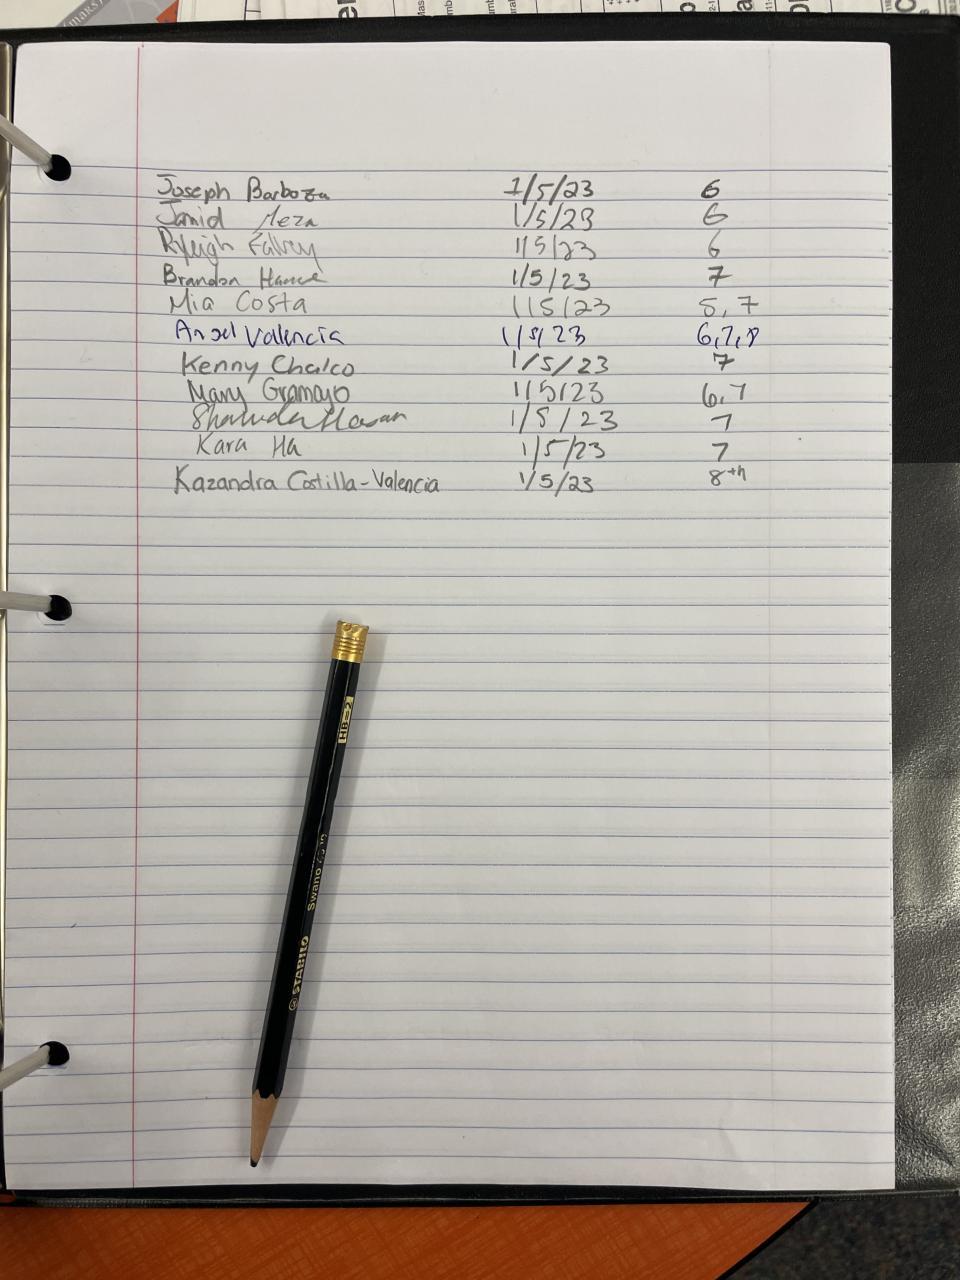 Joseph Barboza 1/5/23 6
Jamid Meza 1/5/23 6
Ryleigh 1/5/23 6
Brandon 1/5/23 7
Mia Costa 1/5/23 5, 7
Angel Valencia 1/5/23 6,7,8
Kenny Chalco 1/5/23 7
Mary Gramayo 1/5/23 6,7
1/5/23 7
Kara Ha 1/5/23 7
Kazandra Costilla-Valencia 1/5/23 8th
HB=2
STABILO Swano